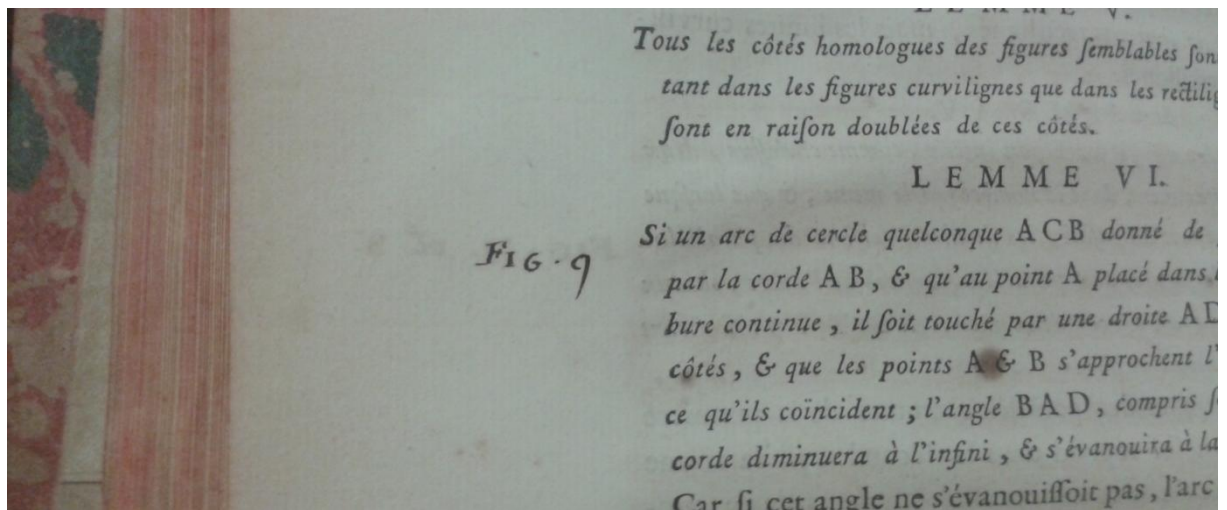 LEMME V.
Tous les côtés homologues des figures ſemblables ſon
tant dans les figures curvilignes que dans les rectilig
ſont en raiſon doublées de ces côtés.
LEMME VI.
FIG. 9
Si un arc de cercle quelconque ACB donné de
par la corde AB, & qu'au point A placé dans
bure continue, il ſoit touché par une droite AD
côtés, & que les points A & B s'approchent l'
ce qu'ils coïncident ; l'angle BAD, compris ſ
corde diminuera à l'infini, & s'évanouira à la
Car ſi cet angle ne s'évanouiſſoit pas, l'arc